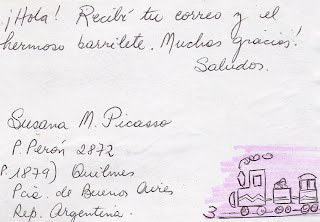 ¡Hola! Recibí tu correo y el
hermoso barrilete. Muchas gracias!
Saludos.
Susana M. Picasso
P. Perón 2872
P. 1879) Quilmes
Pcia. de Buenos Aires
Rep. Argentina.